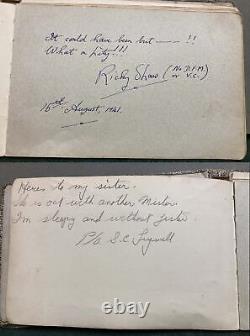 It could have been but —— !!
What a pity!!!
Ricky Shaw (No D.F.M
or V.C.)
15th August, 1941.
Heres to my sister.
is out with another Mister.
I'm sleepy and without
P/O S.C.